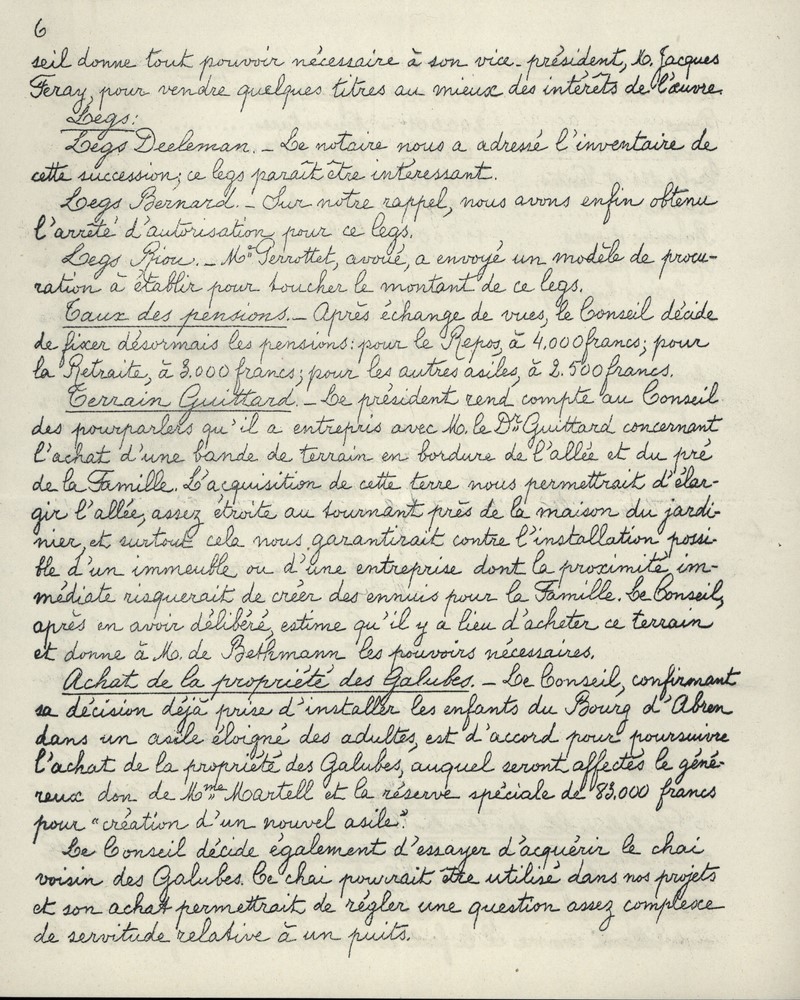 6
seil donne tout pouvoir nécessaire à son vice-président, M. Jacques
Feray, pour vendre quelques titres au mieux des intérêts de l'œuvre.
Legs:
Legs Deeleman. _ Le notaire nous a adressé l'inventaire de
cette succession; ce legs paraît être intéressant.
Legs Bernard. _ Sur notre rappel, nous avons enfin obtenu
l'arrêté d'autorisation pour ce legs.
Legs Riou. _ Me Perrottet, avoué, a envoyé un modèle de procu-
ration à établir pour toucher le montant de ce legs.
Taux des pensions. _ Après échange de vues, le Conseil décide
de fixer désormais les pensions: pour le Repos, à 4.000 francs; pour
la Retraite, à 3.000 francs; pour les autres asiles, à 2.500 francs.
Terrain Guittard. _ Le président rend compte au Conseil
des pourparlers qu'il a entrepris avec M. le Dr Guittard concernant
l'achat d'une bande de terrain en bordure de l'allée et du pré
de la Famille. L'acquisition de cette terre nous permettrait d'élar-
gir l'allée, assez étroite au tournant près de la maison du jardi-
nier, et surtout cela nous garantirait contre l'installation possi-
ble d'un immeuble ou d'une entreprise dont la proximité im-
médiate risquerait de créer des ennuis pour la Famille. Le Conseil,
après en avoir délibéré, estime qu'il y a lieu d'acheter ce terrain
et donne à M. de Bethmann les pouvoirs nécessaires.
Achat de la propriété des Galubes. _ Le Conseil, confirmant
sa décision déjà prise d'installer les enfants du Bourg d'Abren
dans un asile éloigné des adultes, est d'accord pour poursuivre
l'achat de la propriété des Galubes, auquel seront affectés le géné-
reux don de Mme Martell et la réserve spéciale de 83.000 francs
pour "création d'un nouvel asile".
Le Conseil décide également d'essayer d'acquérir le chai
voisin des Galubes. Ce chai pourrait être utilisé dans nos projets
et son achat permettrait de régler une question assez complexe
de servitude relative à un puits.